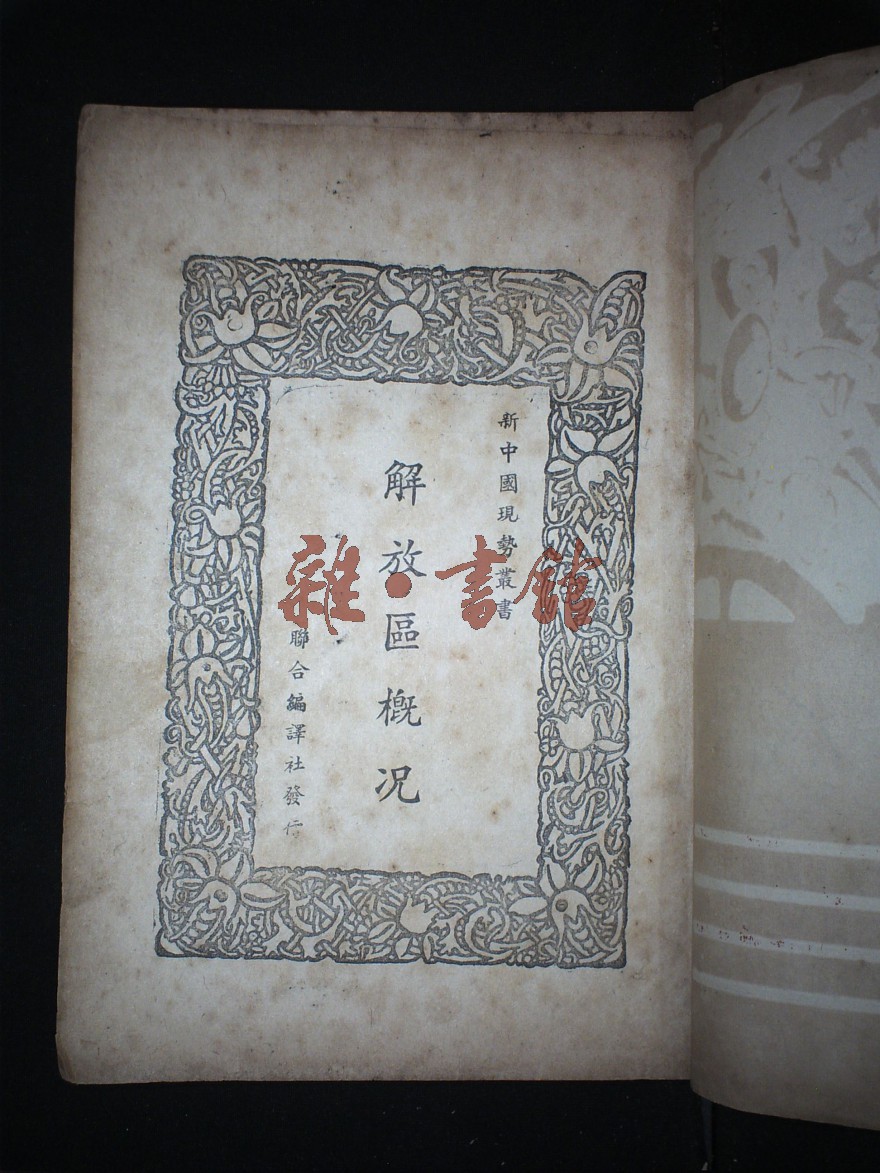 新中國現勢叢書
解放區概况
聯合編譯社發行
雜·書館